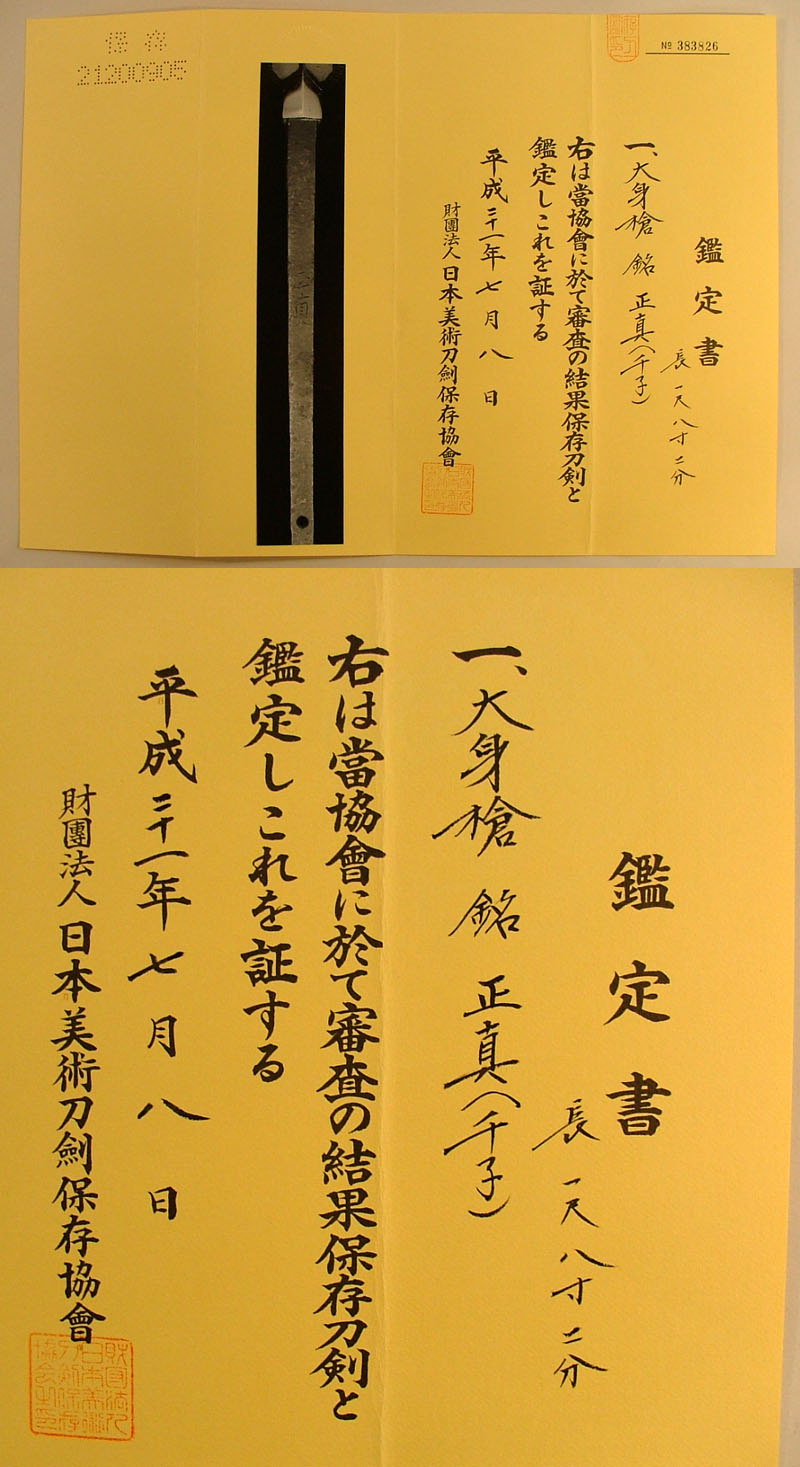 保存
21200905
№ 383826
鑑定書
長 一尺八寸二分
一、大身槍 銘 正真(千子)
右は當協會に於て審査の結果保存刀剣と
鑑定しこれを証する
平成二十一年七月八日
財團法人 日本美術刀劍保存協會
鑑定書
長 一尺八寸二分
一、大身槍 銘 正真(千子)
右は當協會に於て審査の結果保存刀剣と
鑑定しこれを証する
平成二十一年七月八日
財團法人 日本美術刀劍保存協會